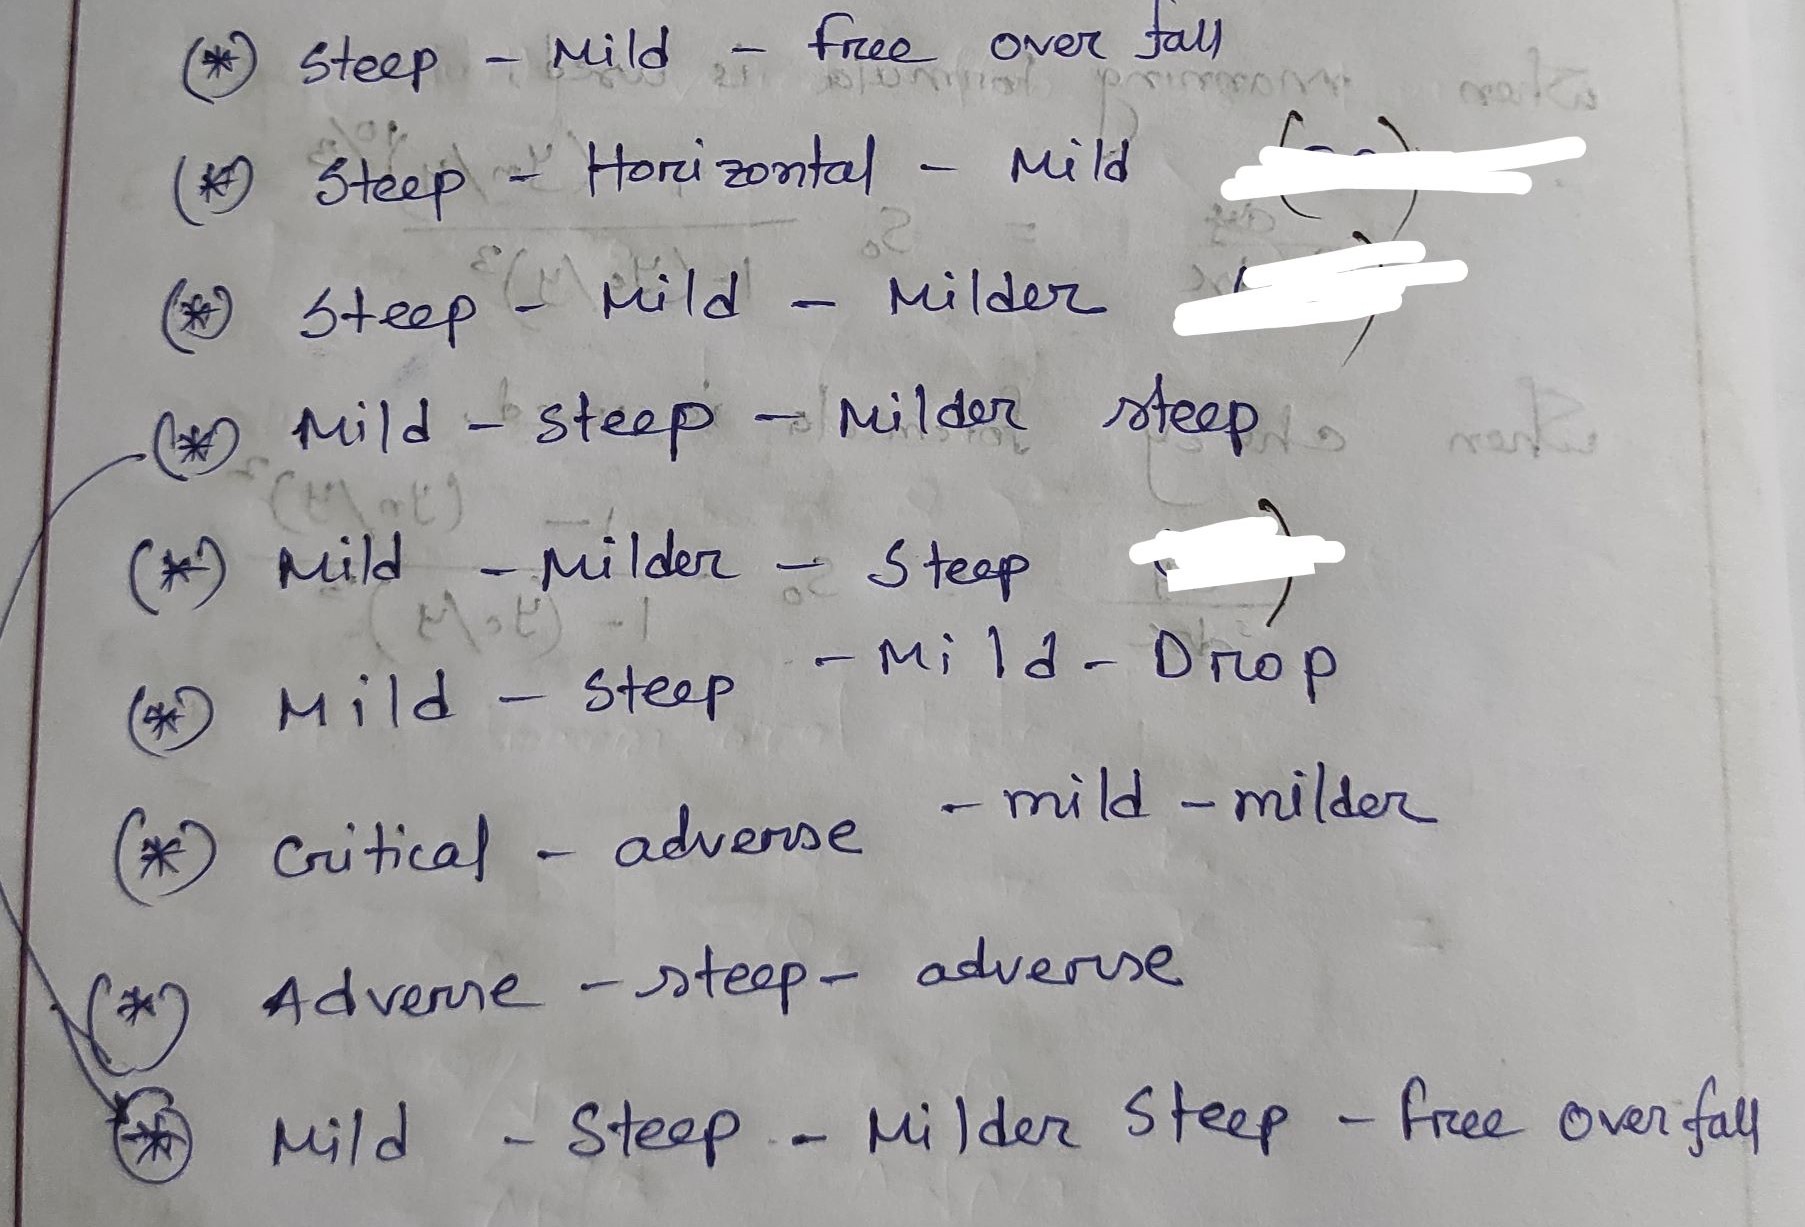 (*) Steep - Mild - free over fall
(*) Steep - Horizontal - Mild
(*) Steep - Mild - Milder
(*) Mild - steep - Milder steep
(*) Mild - Milder - Steep
(*) Mild - Steep - Mild - Drop
(*) Critical - adverse - mild - milder
(*) Adverse - steep - adverse
(*) Mild - Steep - Milder Steep - free over fall